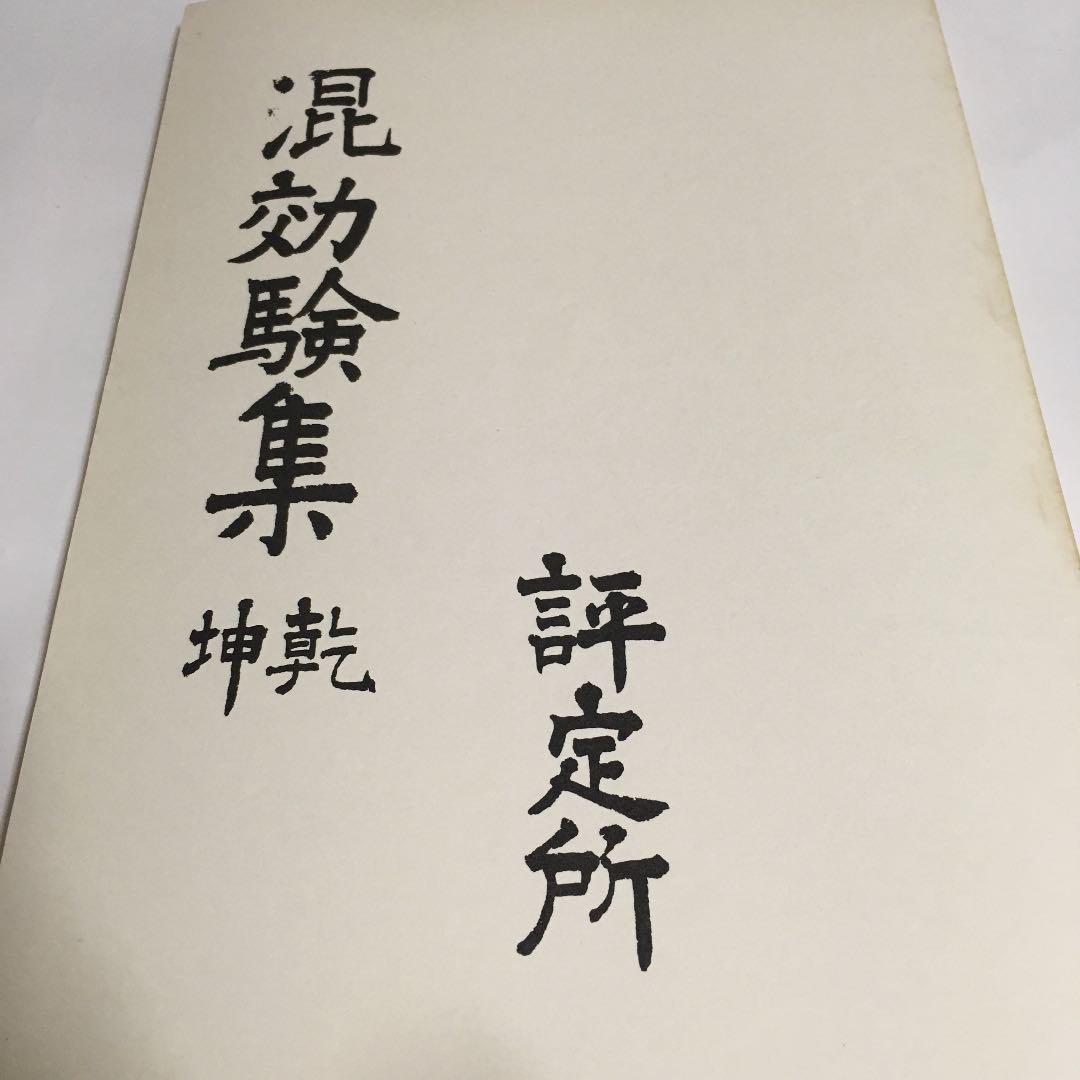 評定所
混効験集 乾坤